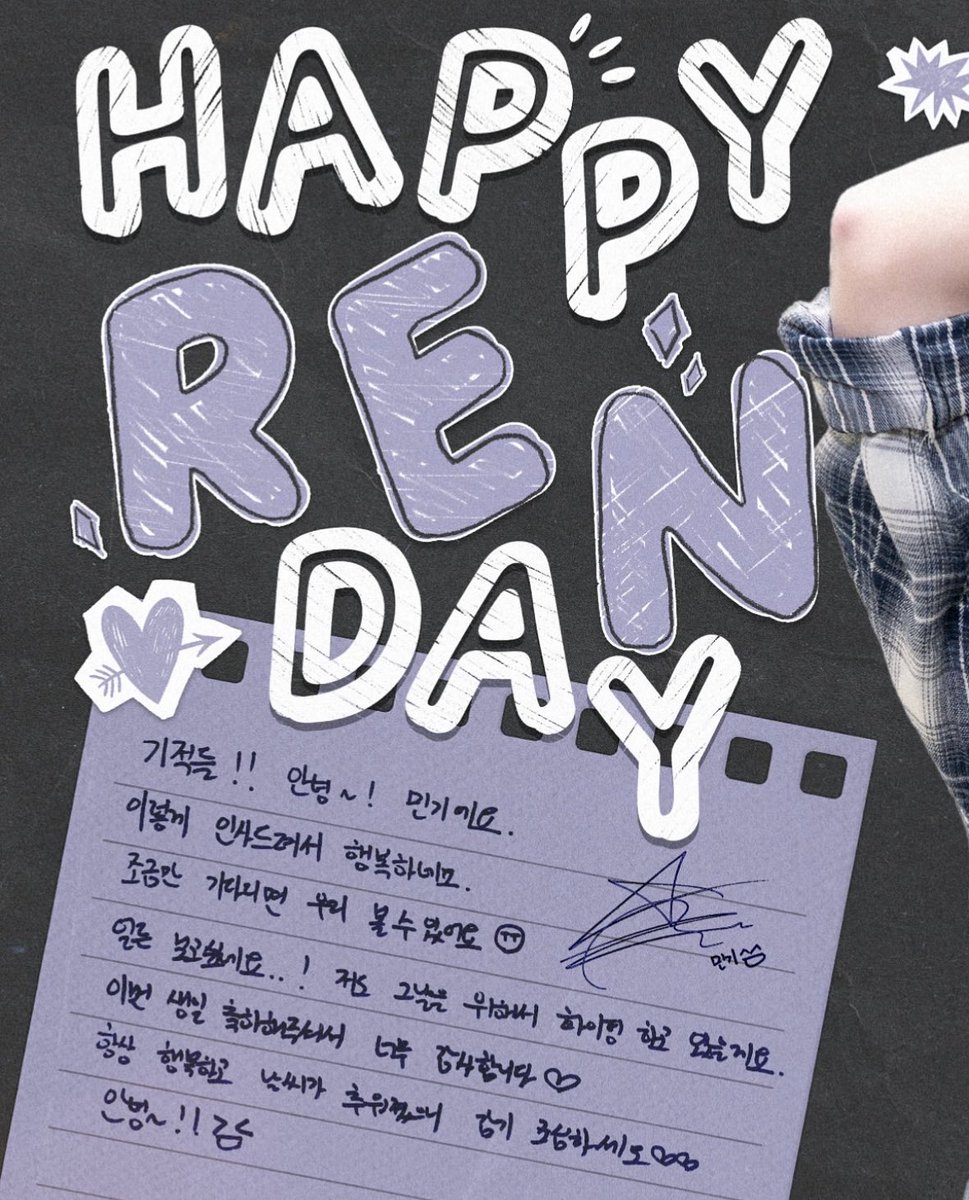 HAPPY
REN
DAY
기적들!! 안녕~! 민기에요.
이렇게 인사드려서 행복하네요.
조금만 기다리면 우리 볼 수 있어요 ㅠㅠ
얼른 보고싶네요..! 저도 그날을 위해서 화이팅 하고 있을게요.
민기
이번 생일 축하해주셔서 너무 감사합니다♡
항상 행복하고 날씨가 추워졌으니 감기 조심하세요♡♡
안녕~!!